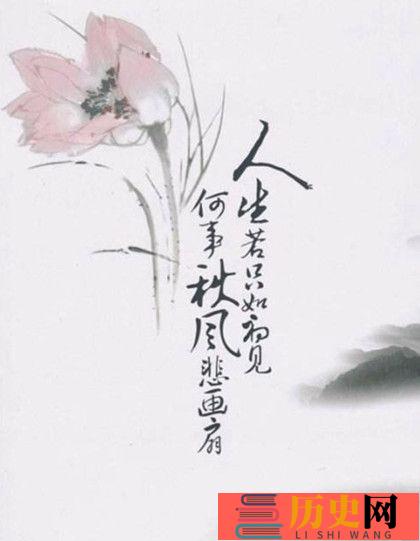 人生若只如初见
何事秋风悲画扇
历史网
LI SHI WANG